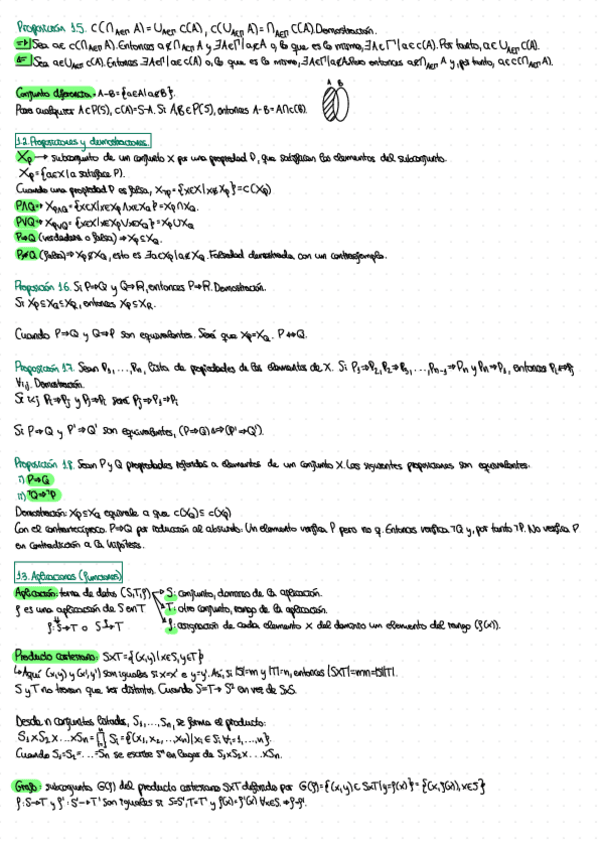 Proposición 1.5. C(∩A∈Γ A) = ∪A∈Γ C(A), C(∪A∈Γ A) = ∩A∈Γ C(A). Demostración.
⇒ Sea a∈ C(∩A∈Γ A). Entonces a∉∩A∈Γ A y ∃A∈Γ | a∉A o, lo que es lo mismo, ∃A∈Γ | a∈C(A). Por tanto, a∈∪A∈Γ C(A).
⇐ Sea a∈∪A∈Γ C(A). Entonces ∃A∈Γ | a∈C(A) o, lo que es lo mismo, ∃A∈Γ | a∉A. Pero entonces a∉∩A∈Γ A y, por tanto, a∈C(∩A∈Γ A).
Conjunto diferencia → A-B = {a∈A | a∉B}.
A B
Para cualquier A∈P(S), C(A)=S-A. Si A,B∈P(S), entonces A-B = A∩C(B).
1.2. Proposiciones y demostraciones.
Xp → subconjunto de un conjunto X por una propiedad P, que satisfacen los elementos del subconjunto.
Xp = {a∈X | a satisface P}.
Cuando una propiedad P es falsa, X¬p = {x∈X | x∉Xp} = C(Xp)
P∧Q → XP∧Q = {x∈X | x∈Xp ∧ x∈XQ} = Xp∩XQ.
P∨Q → XP∨Q = {x∈X | x∈Xp ∨ x∈XQ} = Xp∪XQ
P⇒Q (verdadera o falsa) ⇒ Xp⊆XQ.
P⇏Q (falsa) ⇒ Xp⊄XQ, esto es ∃a∈Xp | a∉XQ. Falsedad demostrada con un contraejemplo.
Proposición 1.6. Si P⇒Q y Q⇒R, entonces P⇒R. Demostración.
Si Xp⊆XQ⊆XR, entonces Xp⊆XR.
Cuando P⇒Q y Q⇒P son equivalentes. Será que Xp=XQ. P⇔Q.
Proposición 1.7. Sean P1,...,Pn, lista de propiedades de los elementos de X. Si P1⇒P2, P2⇒P3,..., Pn-1⇒Pn y Pn⇒P1, entonces Pi⇔Pj
∀i,j. Demostración.
Si i<j Pi⇒Pj y Pj⇒Pi será Pj⇒P1⇒Pi
Si P⇒Q y P'⇒Q' son equivalentes, (P⇒Q)⇔(P'⇒Q').
Proposición 1.8. Sean P y Q propiedades referidas a elementos de un conjunto X. Las siguientes proposiciones son equivalentes:
i) P⇒Q
ii) ¬Q⇒¬P
Demostración: Xp⊆XQ equivale a que C(XQ)⊆C(Xp)
Con el contrarrecíproco. P⇒Q por reducción al absurdo: Un elemento verifica P pero no q. Entonces verifica ¬Q y, por tanto ¬P. No verifica P
en contradicción a la hipótesis.
1.3. Aplicaciones (funciones)
Aplicación: terna de datos (S,T,f) S: conjunto, dominio de la aplicación.
f es una aplicación de S en T T: otro conjunto, rango de la aplicación.
f: S→T o S→T f: asignación de cada elemento x del dominio un elemento del rango (f(x)).
Producto cartesiano: S×T = {(x,y) | x∈S, y∈T}
↳ Aquí (x,y) y (x',y') son iguales si x=x' e y=y'. Así, si |S|=m y |T|=n, entonces |S×T|=mn=|S||T|.
S y T no tienen que ser distintos. Cuando S=T → S² en vez de S×S.
Desde n conjuntos listados, S1,...,Sn, se forma el producto:
S1×S2×...×Sn = ∏ Si = {(x1,x2,...,xn) | xi∈Si ∀i=1,...,n}.
Cuando S1=S2=...=Sn se escribe Sⁿ en lugar de S1×S2×...×Sn.
Grafo: subconjunto G(f) del producto cartesiano S×T definido por G(f)={(x,y)∈S×T | y=f(x)} = {(x,f(x)), x∈S}
f: S→T y f': S'→T' son iguales si S=S', T=T' y f(x)=f'(x) ∀x∈S. → f=f'.